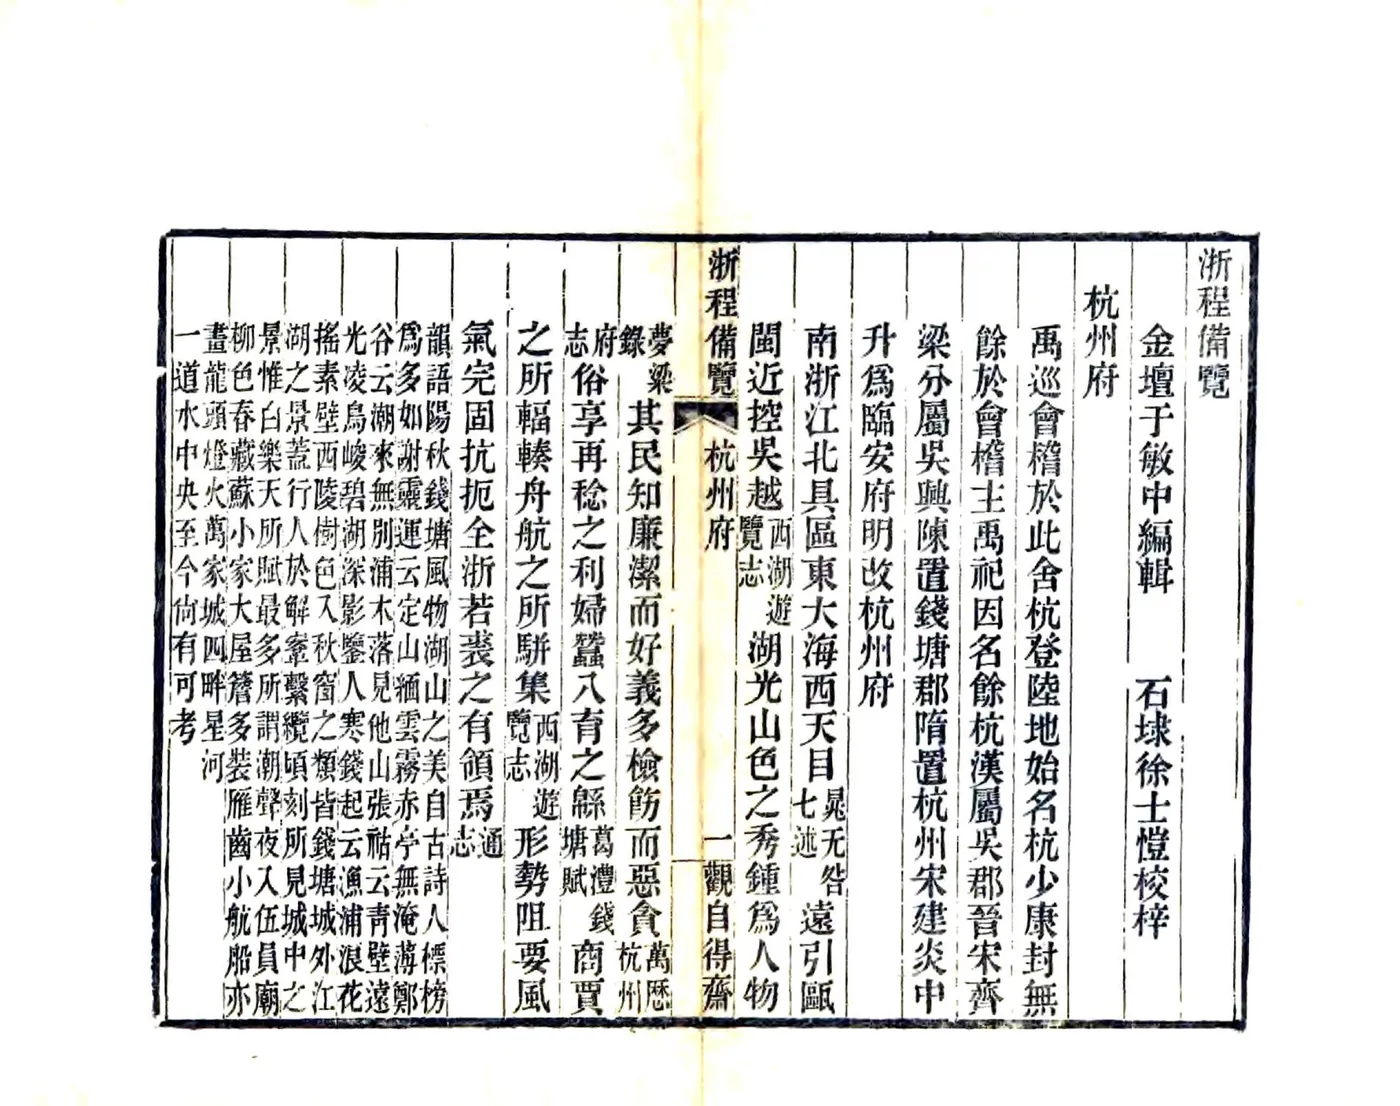 浙程備覽
金壇于敏中編輯 石埭徐士愷校梓
杭州府
禹巡會稽於此舍杭登陸地始名杭少康封無
餘於會稽主禹祀因名餘杭漢屬吳郡晉宋齊
梁分屬吳興陳置錢塘郡隋置杭州宋建炎中
升爲臨安府明改杭州府
南浙江北具區東大海西天目晁无咎七述遠引甌
閩近控吳越西湖遊覽志湖光山色之秀鍾爲人物
浙程備覽 杭州府 一 觀自得齋
夢粱錄其民知廉潔而好義多檢飭而惡貪萬歷杭州
府志俗享再稔之利婦蠶八育之緜葛澧錢塘賦商賈
之所輻輳舟航之所駢集西湖遊覽志形勢阻要風
氣完固抗扼全浙若裘之有領焉通志
韻語陽秋錢塘風物湖山之美自古詩人標榜
爲多如謝靈運云定山緬雲霧赤亭無淹薄鄭
谷云潮來無別浦木落見他山張祜云青壁遠
光凌鳥峻碧湖深影鑒人寒錢起云漁浦浪花
搖素壁西陵樹色入秋窗之類皆錢塘城外江
湖之景蓋行人於解鞌繫纜頃刻所見城中之
景惟白樂天所賦最多所謂潮聲夜入伍員廟
柳色春藏蘇小家大屋簷多裝雁齒小航船亦
畫龍頭燈火萬家城四畔星河
一道水中央至今尚有可考